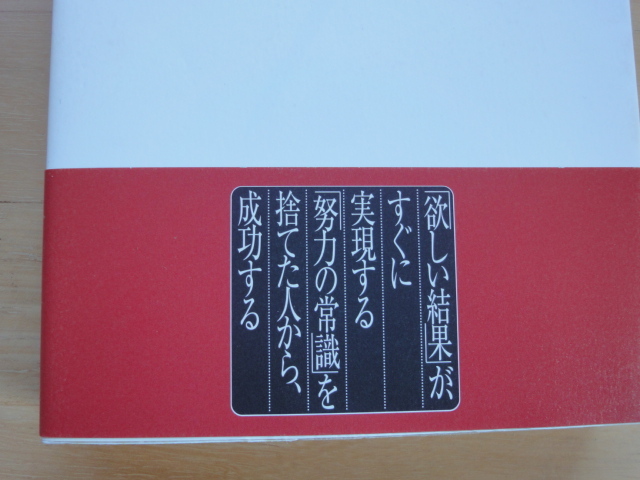 「欲しい結果」が、
すぐに
実現する
「努力の常識」を
捨てた人から、
成功する